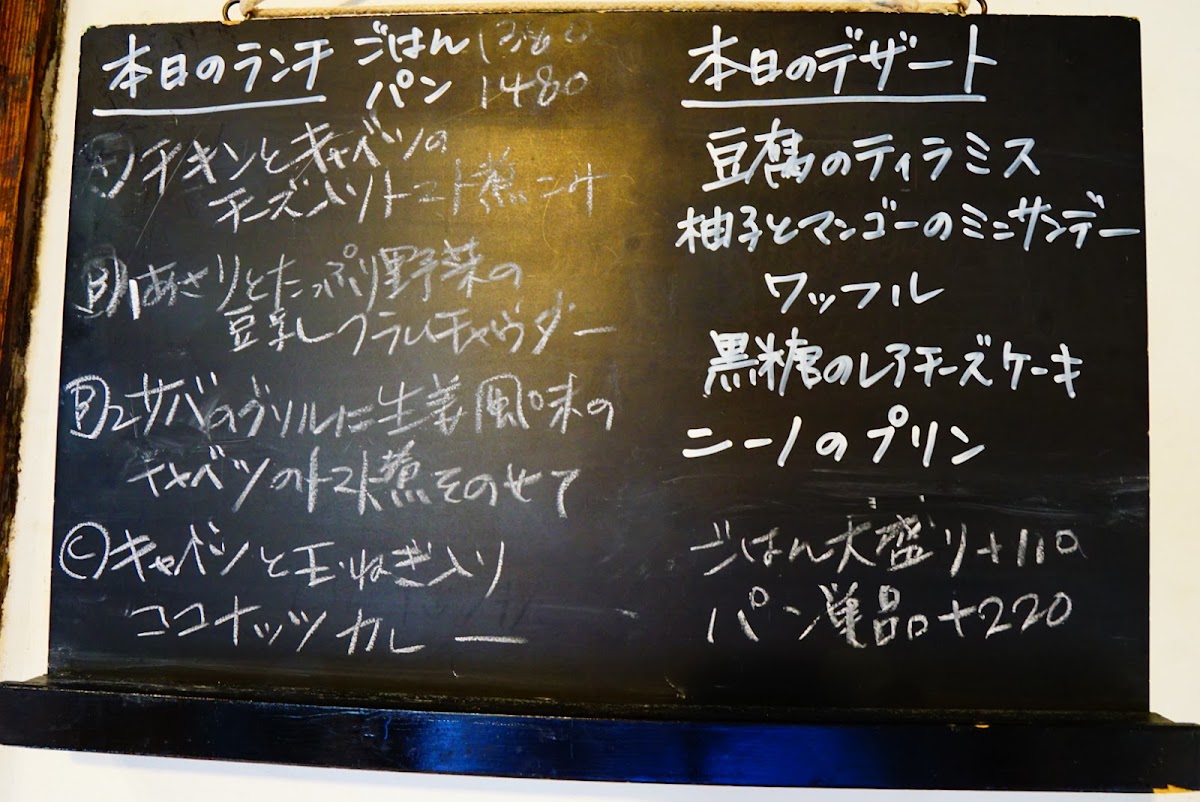 本日のランチ ごはん 1380
パン 1480
Ⓐチキンとキャベツの
チーズ入りトマト煮コミ
Ⓑ1 あさりとたっぷり野菜の
豆乳しクラムチャウダー
Ⓑ2サバのグリルに生姜風味の
キャベツのトマト煮をのせて
Ⓒキャベツと玉ねぎ入り
ココナッツカレー
本日のデザート
豆腐のティラミス
柚子とマンゴーのミニサンデー
ワッフル
黒糖のレアチーズケーキ
ニーノのプリン
ごはん大盛り+110
パン単品+220